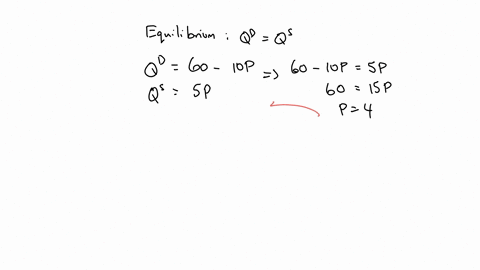 Equilibrium : Q^D = Q^S
Q^D = 60 - 10P => 60 - 10P = 5P
Q^S = 5P 60 = 15P
P = 4